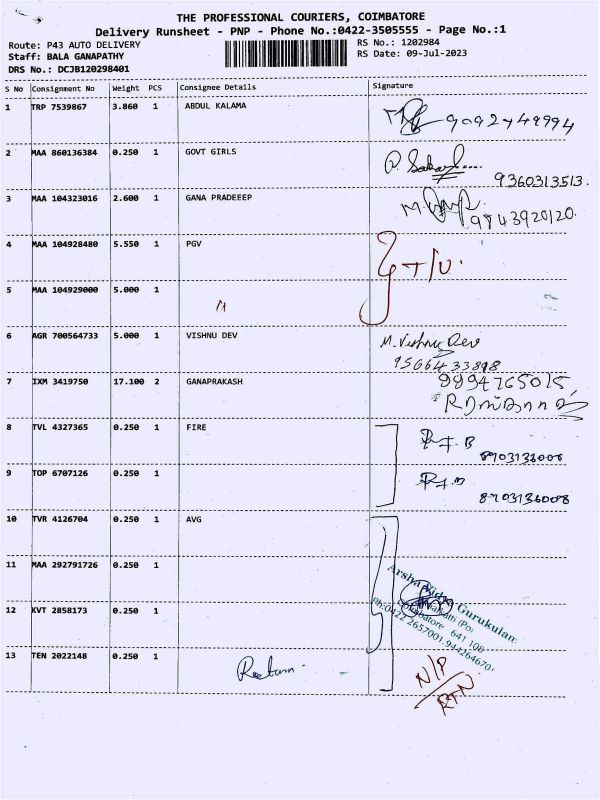 THE PROFESSIONAL COURIERS, COIMBATORE
Delivery Runsheet - PNP - Phone No.:0422-3505555 - Page No.:1
Route: P43 AUTO DELIVERY
RS No.: 1202984
Staff: BALA GANAPATHY
RS Date: 09-Jul-2023
DRS No.: DCJB120298401
S No Consignment No Weight PCS Consignee Details Signature
1 TRP 7539867 3.860 1 ABDUL KALAMA
2 MAA 860136384 0.250 1 GOVT GIRLS
9360313513.
3 MAA 104323016 2.600 1 GANA PRADEEEP
9843920120.
4 MAA 104928480 5.550 1 PGV
5 MAA 104929000 5.000 1
6 AGR 700564733 5.000 1 VISHNU DEV M. Vishnu Dev
7 IXM 3419750 17.100 2 GANAPRAKASH 9994765015,
8 TVL 4327365 0.250 1 FIRE
8903136008
9 TOP 6707126 0.250 1
8903136008
10 TVR 4126704 0.250 1 AVG
11 MAA 292791726 0.250 1
Arsha Vidya Gurukulam
12 KVT 2858173 0.250 1
Coimbatore 641 108
Ph:0422 2657001
13 TEN 2022148 0.250 1 Return
N/P
RTN